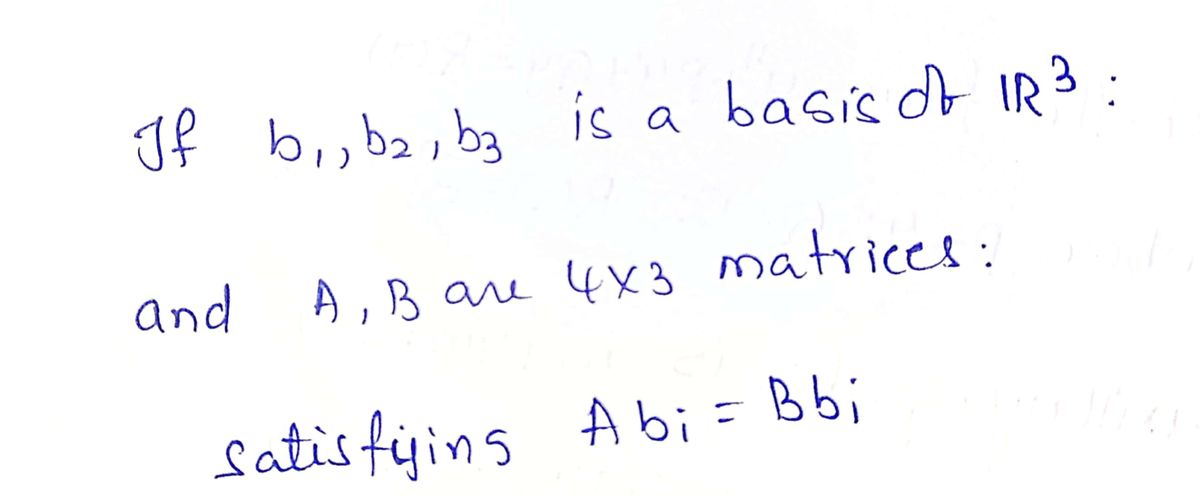 If b₁, b₂, b₃ is a basis of ℝ³ :
and A, B are 4×3 matrices :
satisfying A bᵢ = B bᵢ